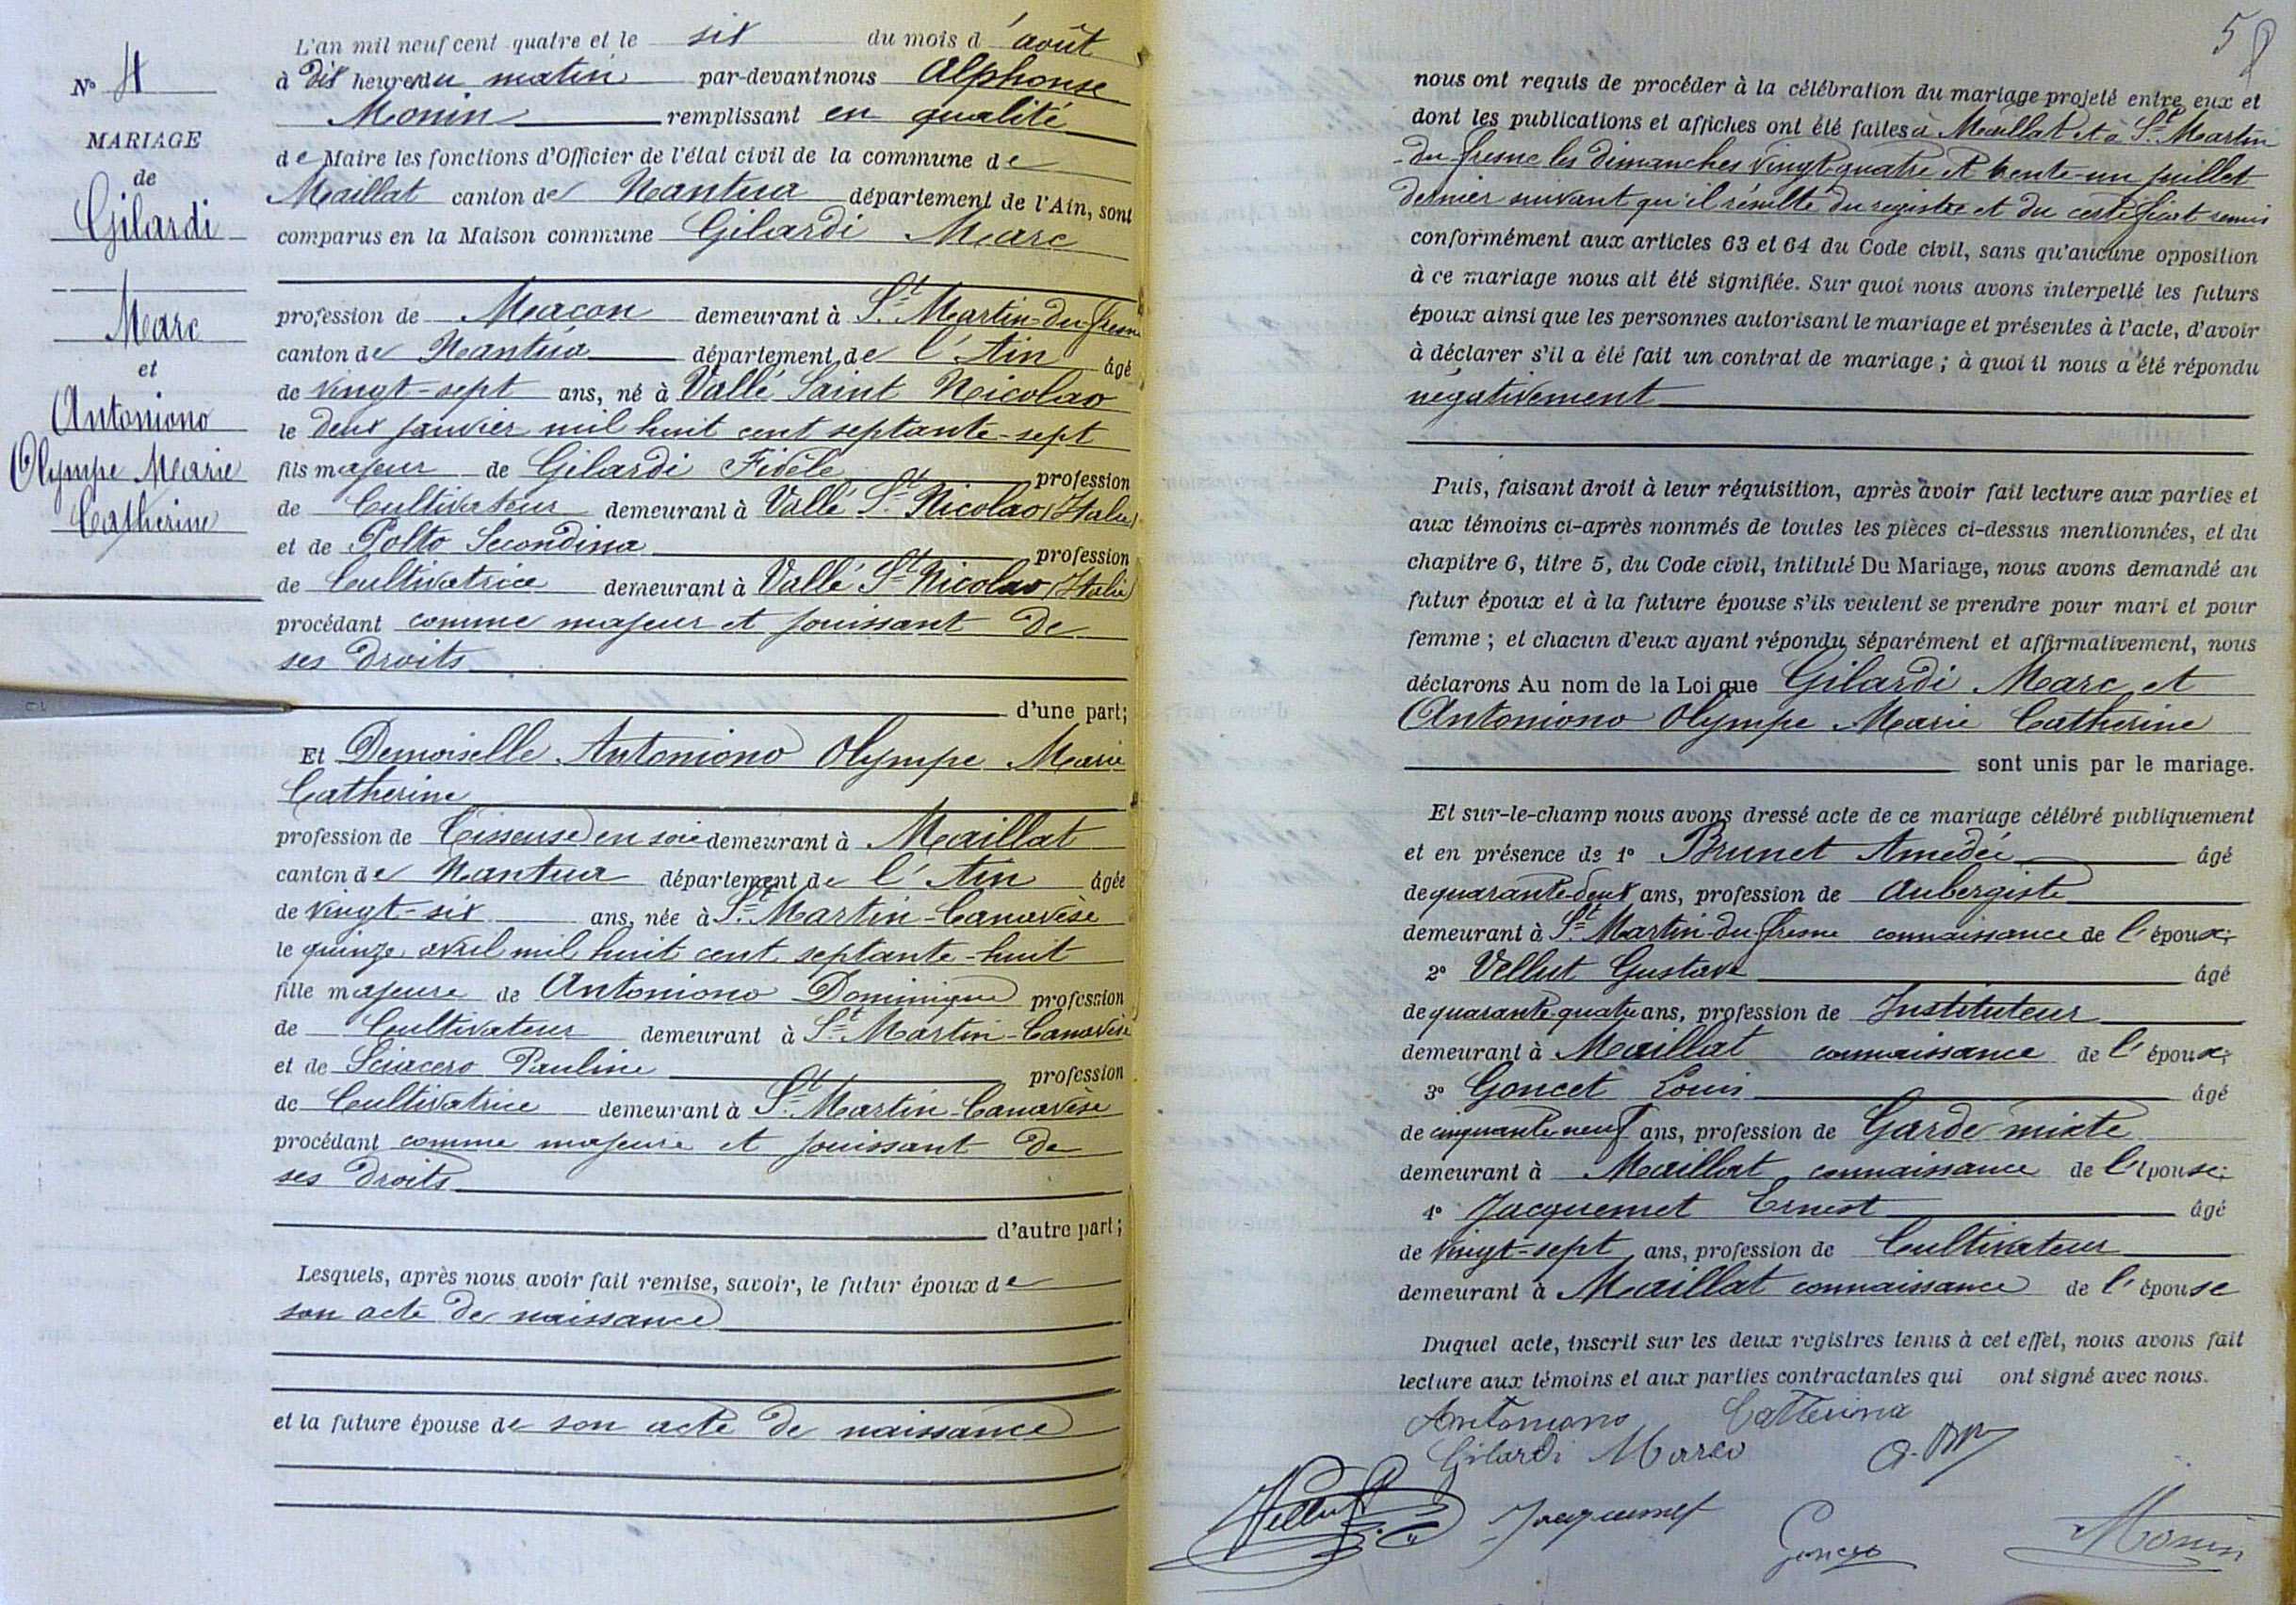 N° 4
MARIAGE
de
Gilardi
Marc
et
Antoniono
Olympe Marie
Catherine
L'an mil neuf cent quatre et le six du mois d'août
à dix heures du matin par-devant nous Alphonse
Monin remplissant en qualité
de Maire les fonctions d'Officier de l'état civil de la commune de
Maillat canton de Nantua département de l'Ain, sont
comparus en la Maison commune Gilardi Marc
profession de Maçon demeurant à St Martin-du-Fresne
canton de Nantua département de l'Ain âgé
de vingt-sept ans, né à Vallé Saint Nicolao
le deux janvier mil huit cent septante-sept
fils majeur de Gilardi Fidèle profession
de Cultivateur demeurant à Vallé St Nicolao (Italie)
et de Polto Secondina profession
de Cultivatrice demeurant à Vallé St Nicolao (Italie)
procédant comme majeur et jouissant de
ses droits
d'une part;
Et Demoiselle Antoniono Olympe Marie
Catherine
profession de Tisseuse en soie demeurant à Maillat
canton de Nantua département de l'Ain âgée
de vingt-six ans, née à St Martin-Canavèse
le quinze avril mil huit cent septante-huit
fille majeure de Antoniono Dominique profession
de Cultivateur demeurant à St Martin-Canavèse
et de Sciacero Pauline profession
de Cultivatrice demeurant à St Martin-Canavèse
procédant comme majeure et jouissant de
ses droits
d'autre part;
Lesquels, après nous avoir fait remise, savoir, le futur époux de
son acte de naissance
et la future épouse de son acte de naissance
58
nous ont requis de procéder à la célébration du mariage projeté entre eux et
dont les publications et affiches ont été faites à Maillat et à St Martin
-du-fresne les dimanches vingt-quatre et trente-un juillet
dernier suivant qu'il résulte du registre et du certificat remis
conformément aux articles 63 et 64 du Code civil, sans qu'aucune opposition
à ce mariage nous ait été signifiée. Sur quoi nous avons interpellé les futurs
époux ainsi que les personnes autorisant le mariage et présentes à l'acte, d'avoir
à déclarer s'il a été fait un contrat de mariage ; à quoi il nous a été répondu
négativement
Puis, faisant droit à leur réquisition, après avoir fait lecture aux parties et
aux témoins ci-après nommés de toutes les pièces ci-dessus mentionnées, et du
chapitre 6, titre 5, du Code civil, intitulé Du Mariage, nous avons demandé au
futur époux et à la future épouse s'ils veulent se prendre pour mari et pour
femme ; et chacun d'eux ayant répondu séparément et affirmativement, nous
déclarons Au nom de la Loi que Gilardi Marc et
Antoniono Olympe Marie Catherine
sont unis par le mariage.
Et sur-le-champ nous avons dressé acte de ce mariage célébré publiquement
et en présence de 1° Brunet Amédée âgé
de quarante-deux ans, profession de Aubergiste
demeurant à St Martin-du-fresne connaissance de l'époux;
2° Vellut Gustave âgé
de quarante-quatre ans, profession de Instituteur
demeurant à Maillat connaissance de l'époux;
3° Goncet Louis âgé
de cinquante neuf ans, profession de Garde mixte
demeurant à Maillat connaissance de l'épouse;
4° Jacquemet Ernest âgé
de vingt-sept ans, profession de Cultivateur
demeurant à Maillat connaissance de l'épouse
Duquel acte, inscrit sur les deux registres tenus à cet effet, nous avons fait
lecture aux témoins et aux parties contractantes qui ont signé avec nous.
Antoniono Catterina
Gilardi Marco
Vellut Jacquemet Goncet Monin